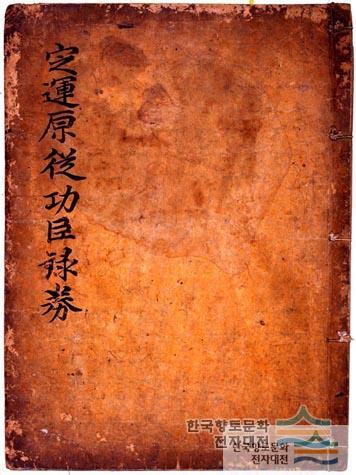 定運原從功臣錄券
한국향토문화
전자대전
한국향토문화
전자대전